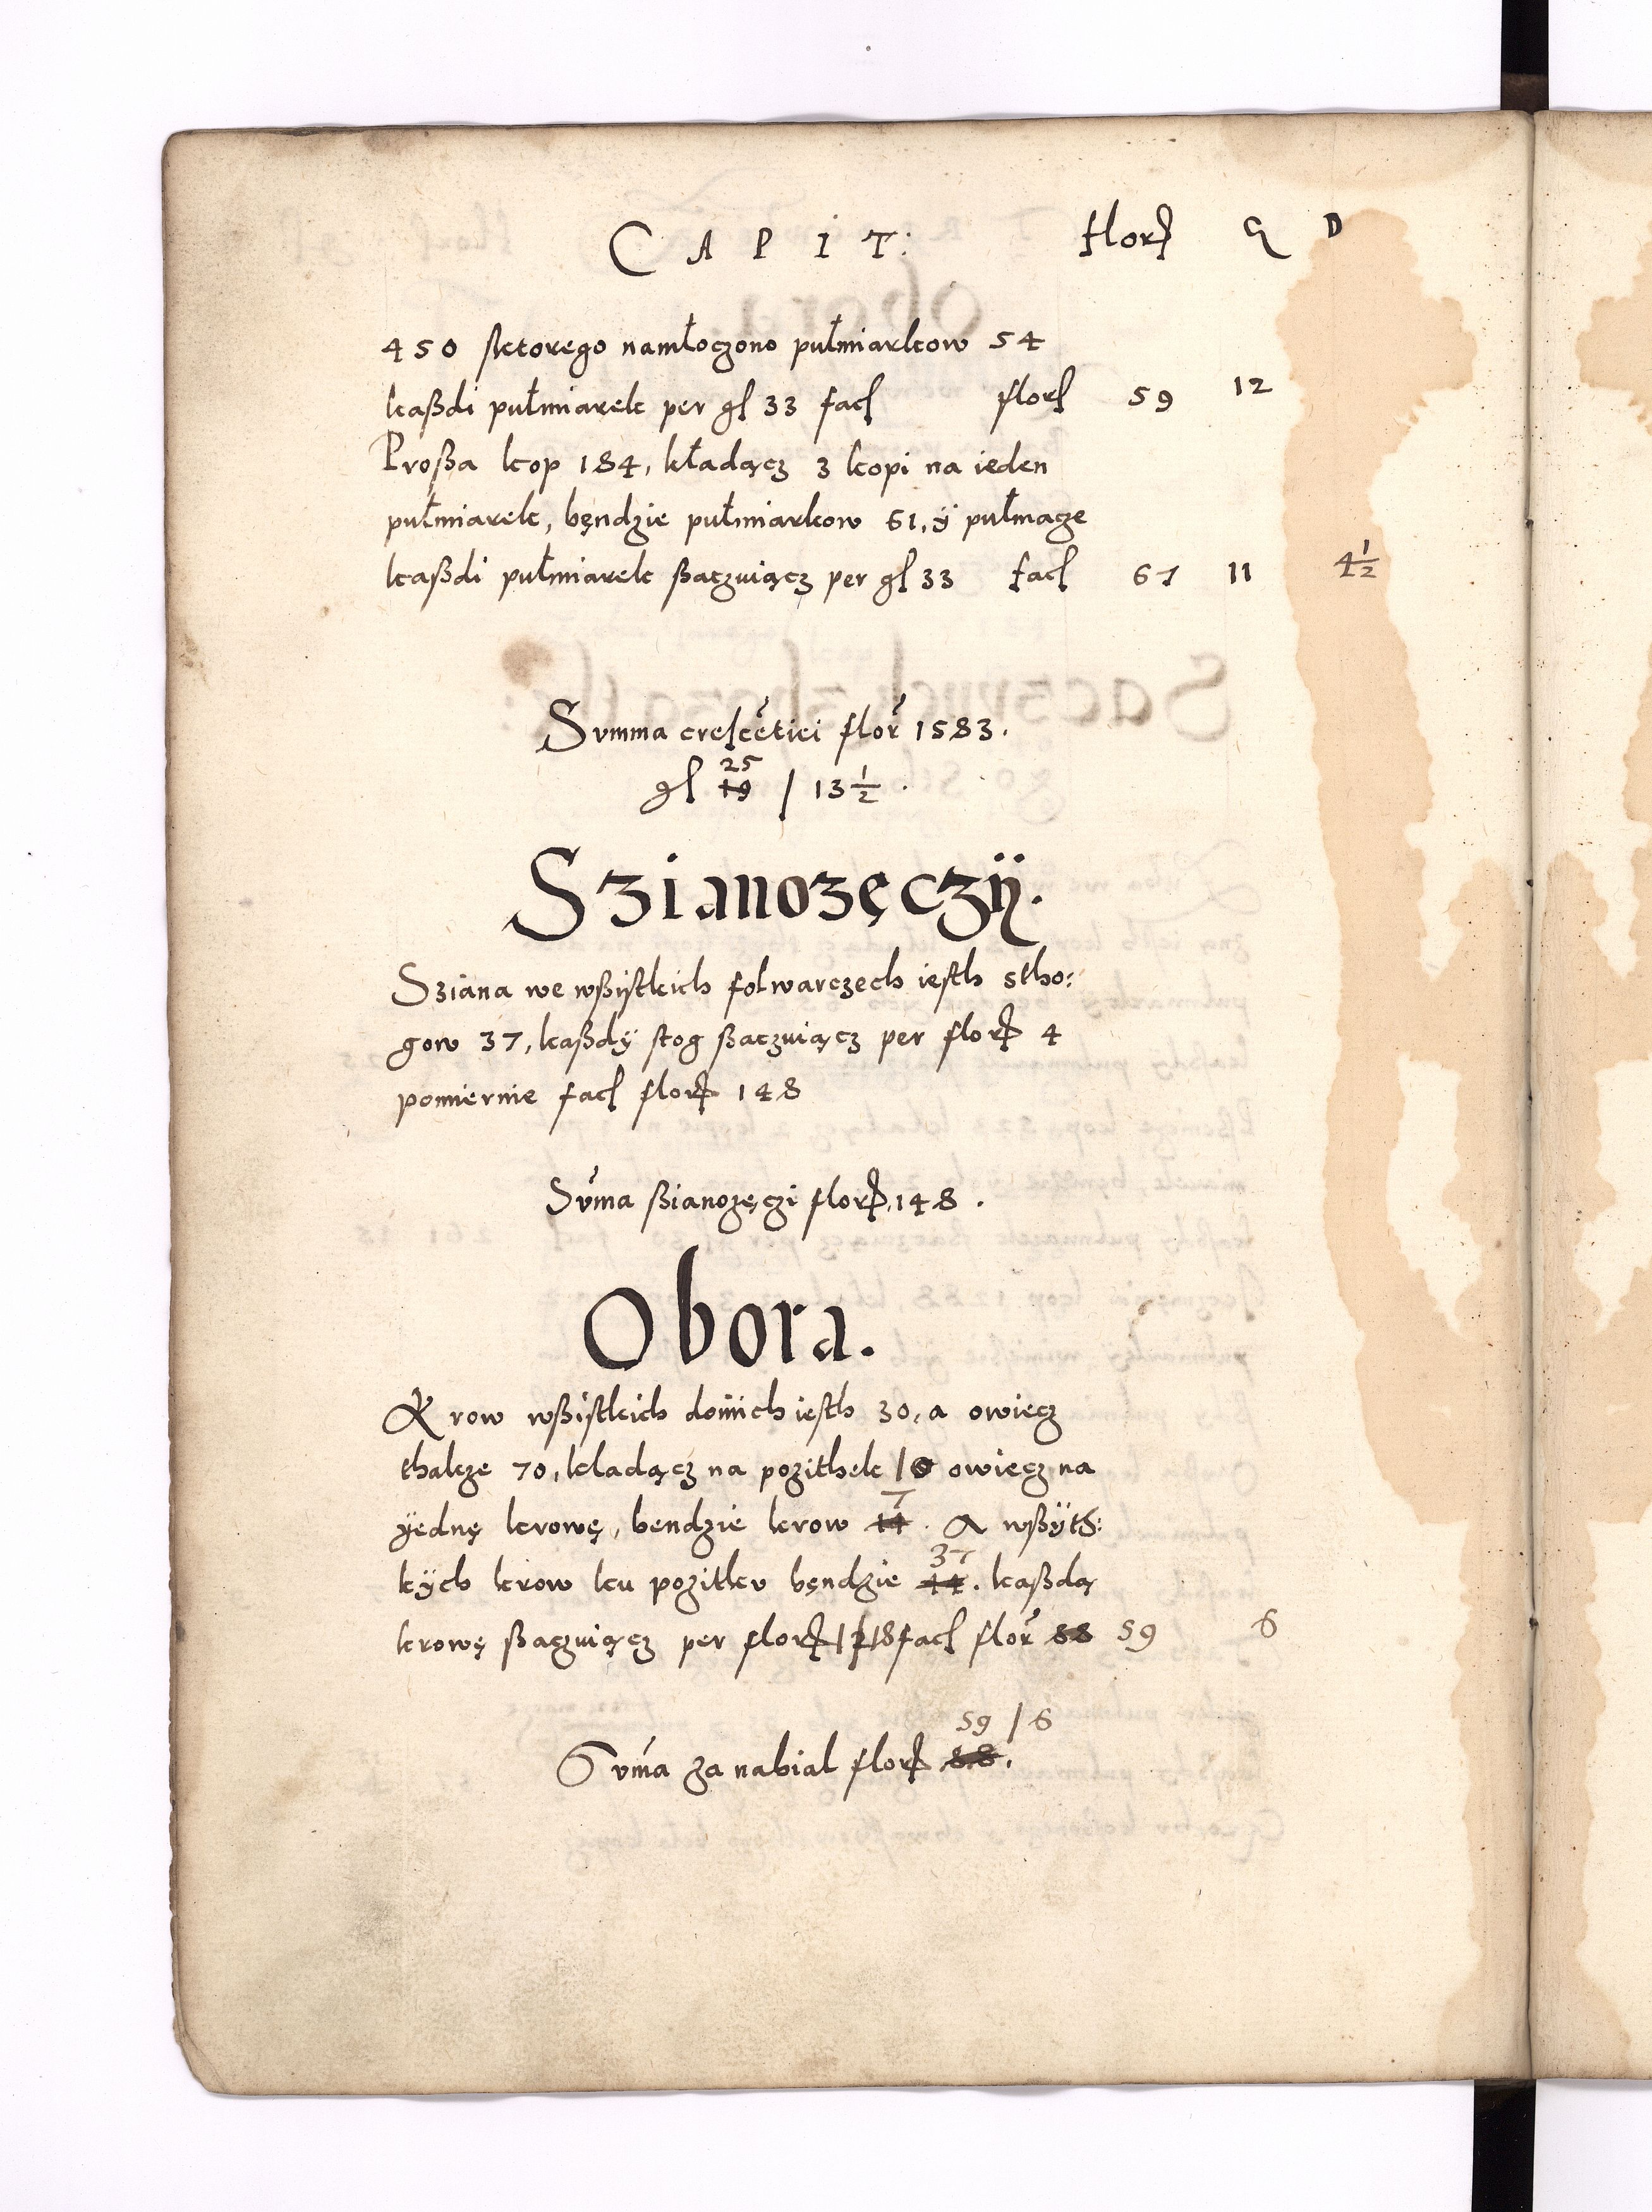 C A P I T: Flor G D
450 sktorego namłoczono pułmiarkow 54
kaßdi pułmiarek per gl 33 facl florl 59 12
Proßa kop 184, kładącz 3 kopi na ieden
pułmiarek, bęndzie pułmiarkow 61, ÿ pułmacze
kaßdi pułmiarek ßaczuiącz per gl 33 facl 67 11 4½
Svmma crescētiei flor 1583.
gl 19 25 / 13½.
Szianozęczÿ.
Sziana we wßistkich folwarczech iesth stho:
gow 37, kaßdÿ stog ßaczuiącz per flor 4
pomiernie facl flor 148
Svma ßianozęczi flor 148.
Obora.
Krow wßistkich doinich iesth 30, a owiecz
thakze 70, kladącz na pozithek 10 owiecz na
ÿednę krowę, bendzie krow 14 7. A wßÿth:
kÿch krow ku pozitkv bęndzie 44 37. kaßdą
krowę ßaczuiącz per flor 1/18 facl flor 88 59 6
59 / 6
Svma za nabial flor 88.